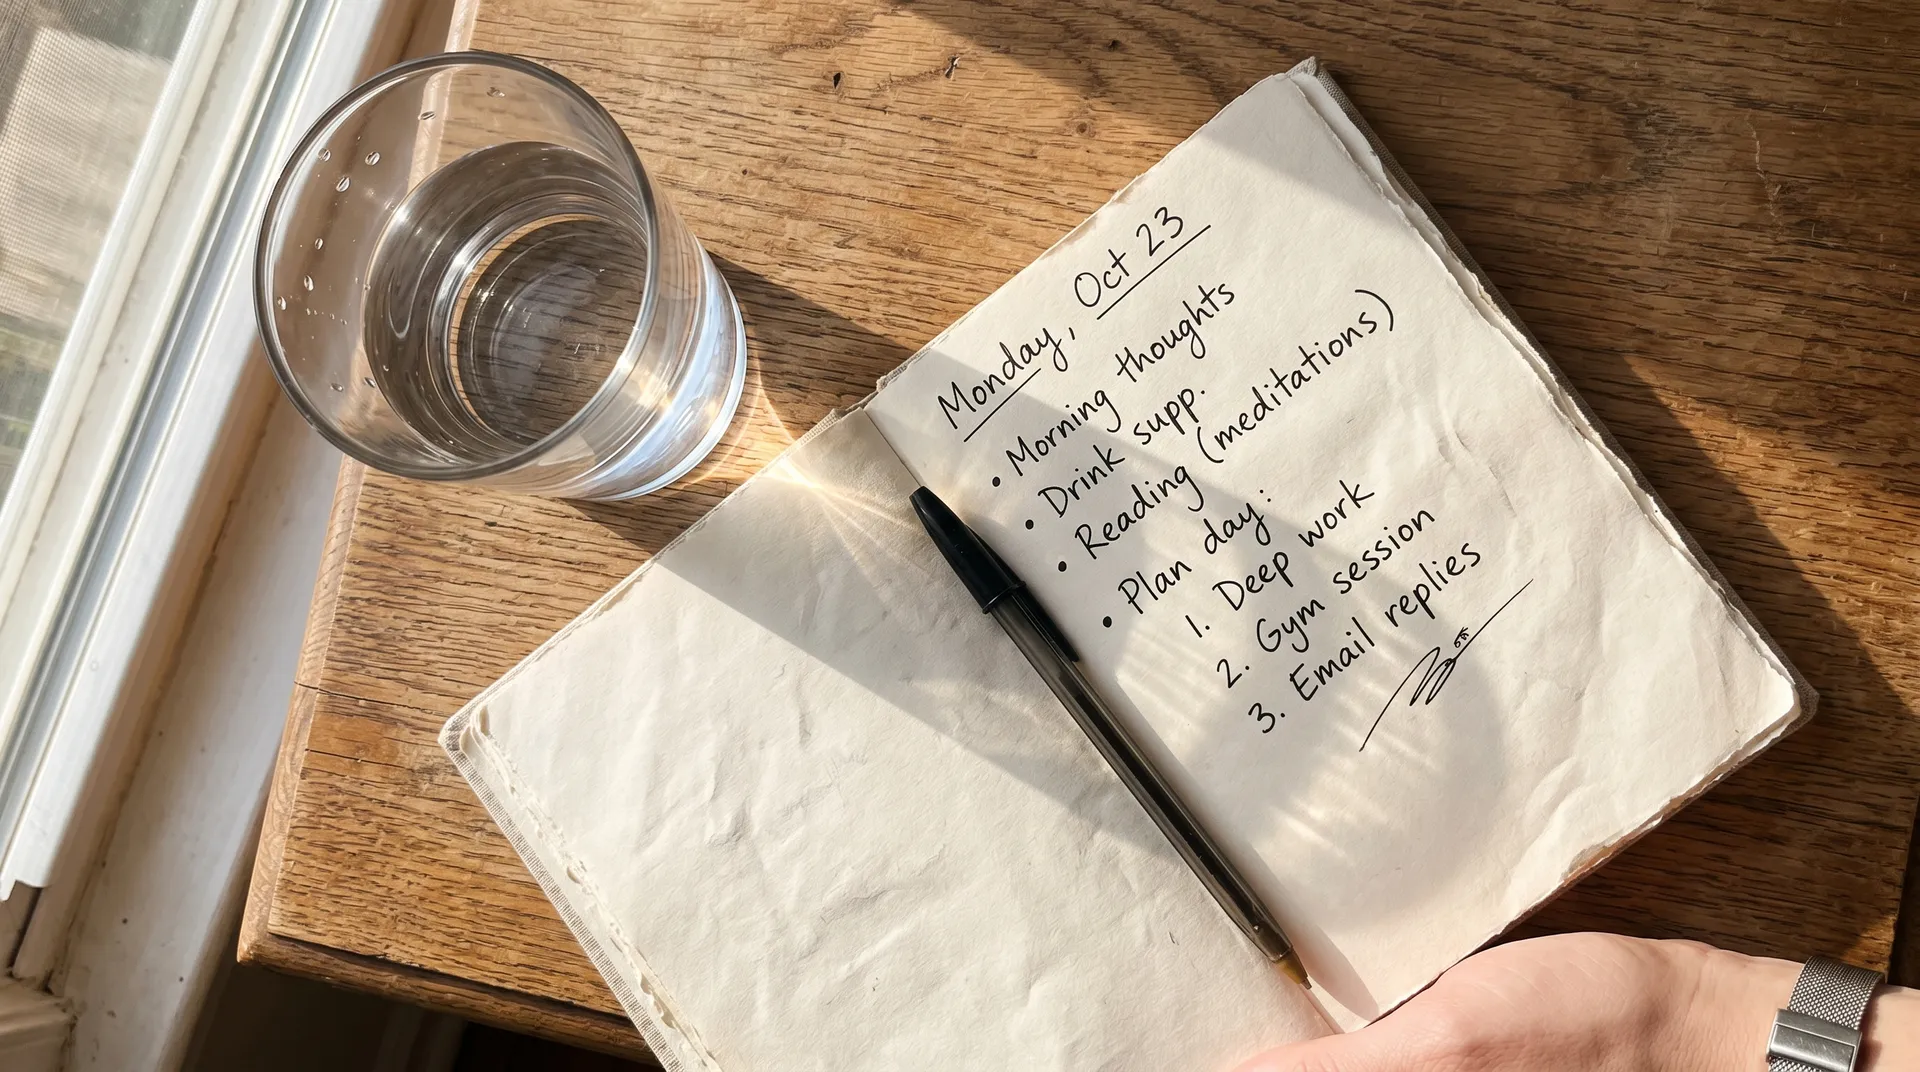 Monday, Oct 23
• Morning thoughts
• Drink supp.
• Reading (meditations)
• Plan day:
1. Deep work
2. Gym session
3. Email replies